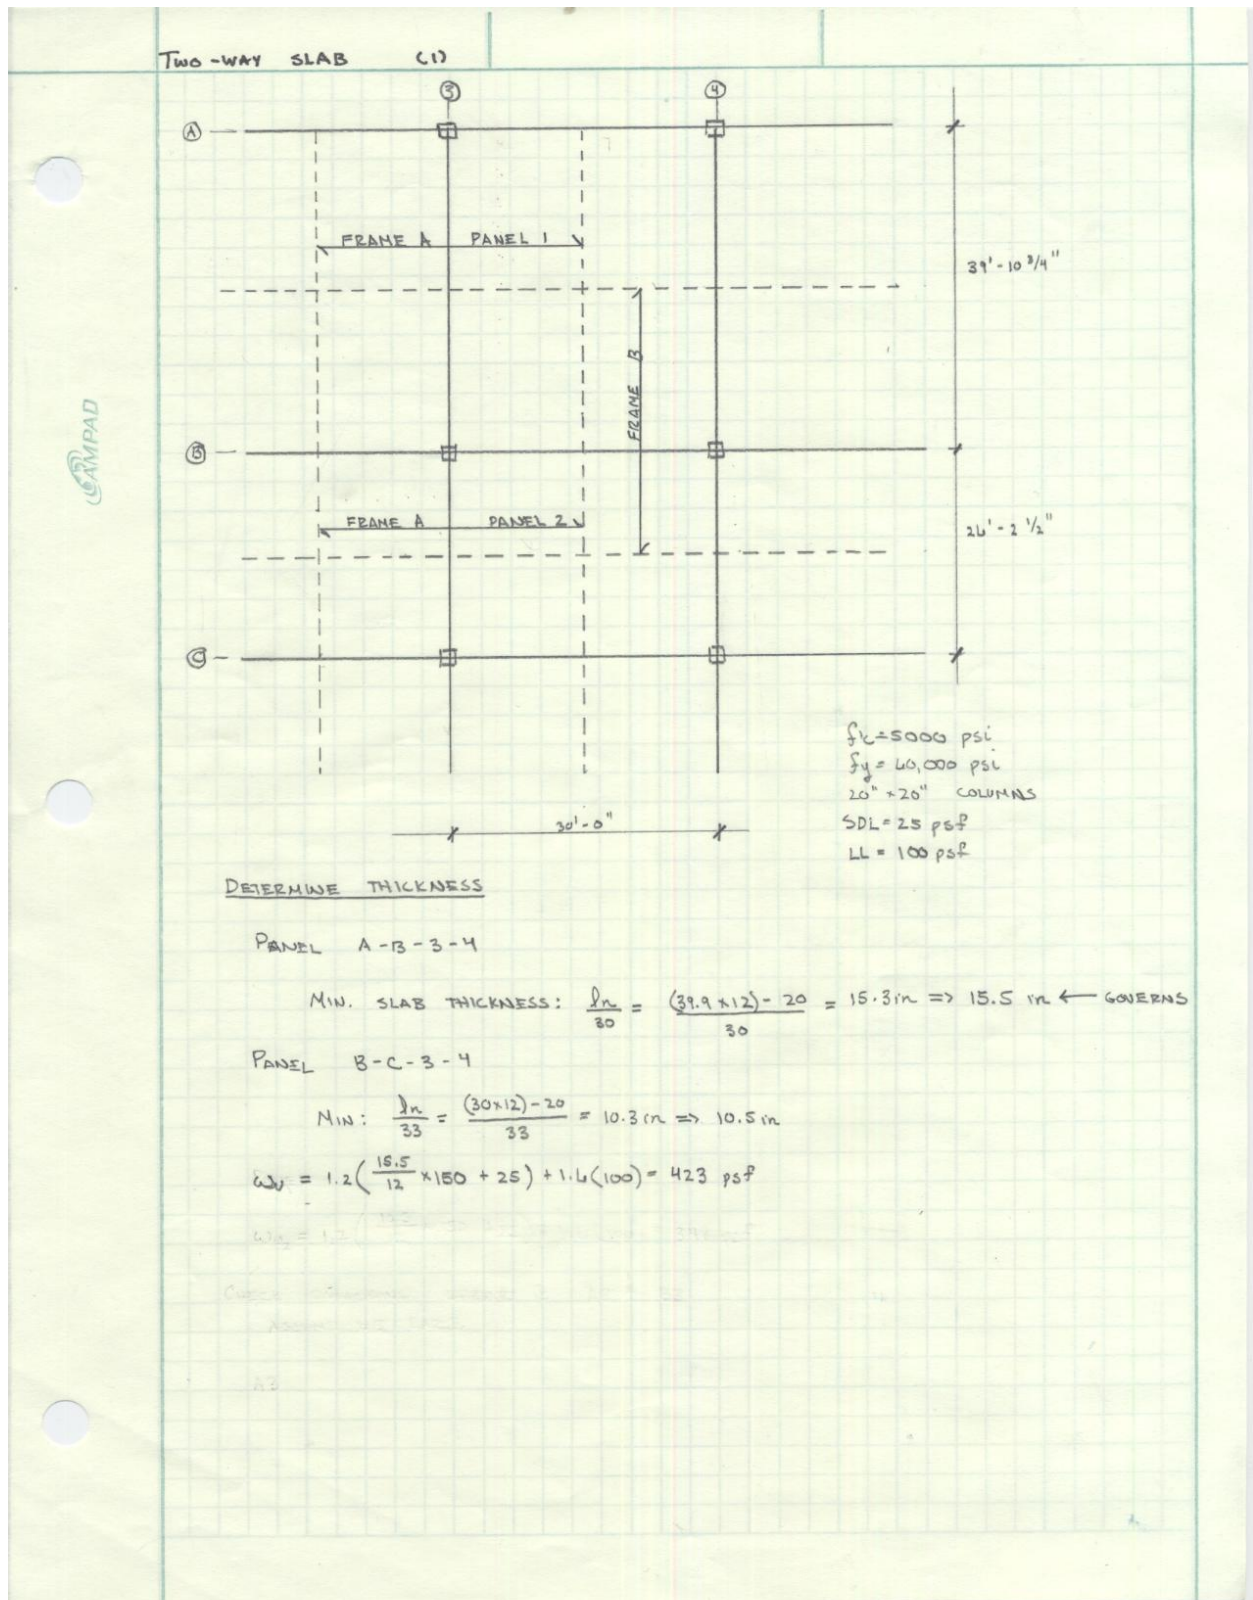 TWO-WAY SLAB (1)
3 4
A
FRAME A PANEL 1
39'-10 3/4"
FRAME B
B
FRAME A PANEL 2
26'-2 1/2"
C
f'c=5000 psi
fy = 60,000 psi
20" × 20" COLUMNS
SDL = 25 psf
LL = 100 psf
30'-0"
DETERMINE THICKNESS
PANEL A-B-3-4
MIN. SLAB THICKNESS: ln/30 = (39.9 x12) - 20 / 30 = 15.3in => 15.5 in ← GOVERNS
PANEL B-C-3-4
MIN: ln/33 = (30x12) - 20 / 33 = 10.3 in => 10.5 in
ωu = 1.2(15.5/12 x150 + 25) + 1.6(100) = 423 psf
AMPAD